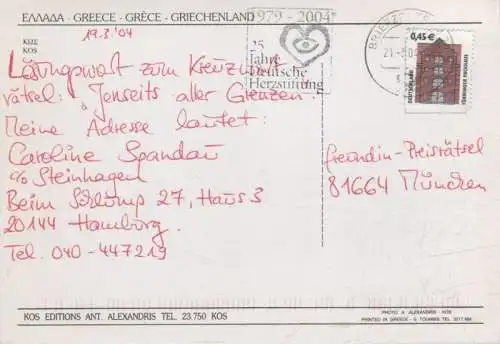 ΕΛΛΑΔΑ - GREECE - GRÈCE - GRIECHENLAND
ΚΩΣ
KOS
19.3.'04
Lösungswort zum Kreuzwort
rätsel: Jenseits aller Grenzen.
Meine Adresse lautet:
Caroline Spandau
c/o Steinhagen
Beim Schlump 27, Haus 3
20144 Hamburg.
Tel. 040-447219
1979 - 2004
25
Jahre
Deutsche
Herzstiftung
BRIEFZ
21-3.04
0,45 €
DEUTSCHLAND
freundin-Preisrätsel
81664 München
KOS EDITIONS ANT. ALEXANDRIS TEL. 23.750 KOS
PHOTO: A. ALEXANDRIS - KOS
PRINTED IN GREECE -